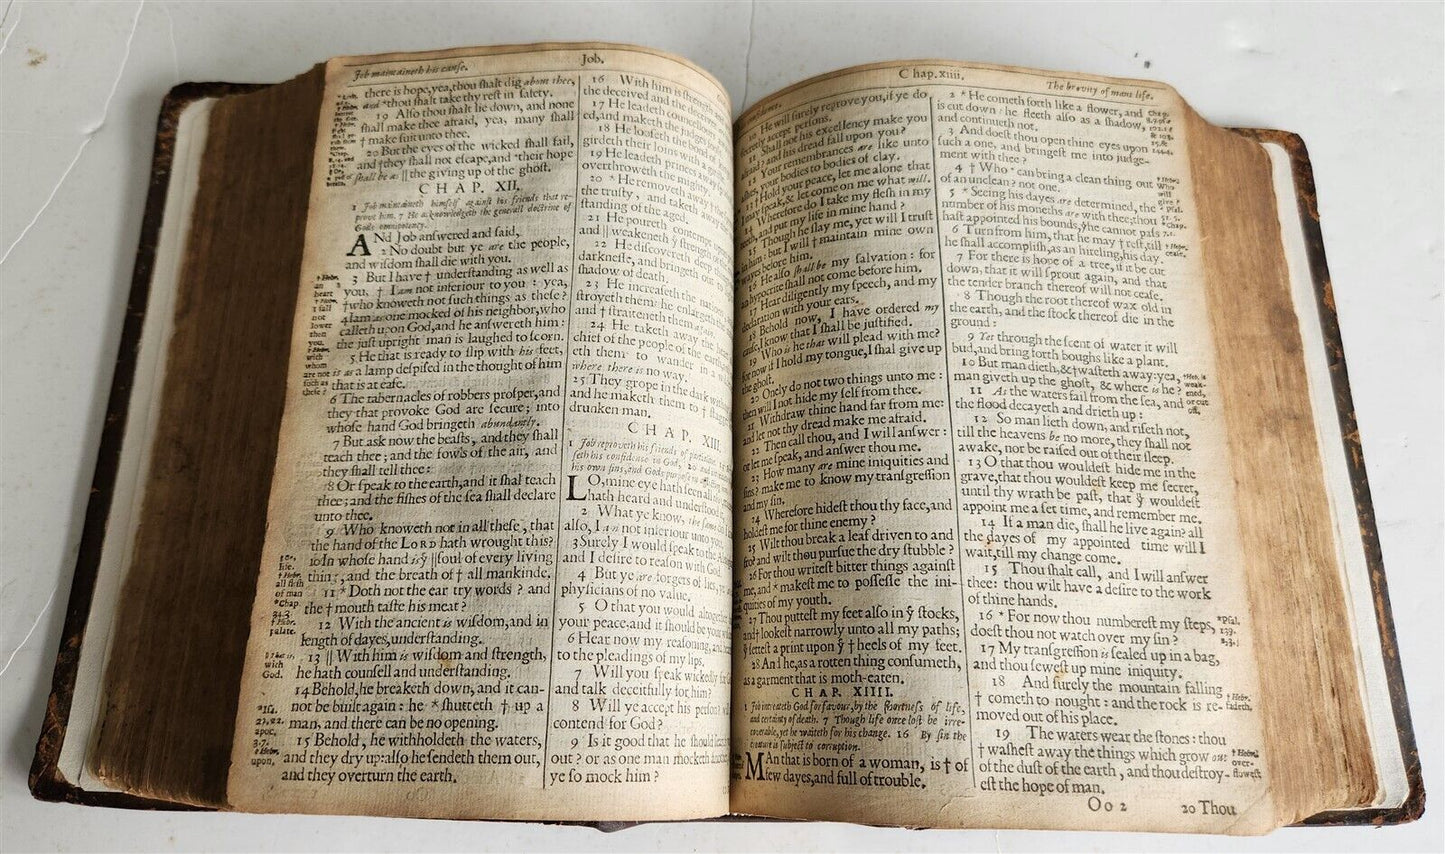 Job maintaineth his cause.
Job.
there is hope, yea, thou ſhalt dig about thee,
and *thou ſhalt take thy reſt in ſafety.
19 Alſo thou ſhalt lie down, and none
ſhall make thee afraid, yea, many ſhall
† make ſuit unto thee.
20 But the eyes of the wicked ſhall fail,
and †they ſhall not eſcape, and *their hope
ſhall be as || the giving up of the ghoſt.
CHAP. XII.
1 Job maintaineth himſelf againſt his friends that re-
prove him. 7 He acknowledgeth the generall doctrine of
Gods omnipotency.
ANd Job answered and ſaid,
2 No doubt but ye are the people,
and wiſdom ſhall die with you.
3 But I have † underſtanding as well as
you, † I am not inferiour to you : yea,
†who knoweth not ſuch things as theſe?
4 I am as one mocked of his neighbor, who
calleth upon God, and he anſwereth him:
the juſt upright man is laughed to ſcorn.
5 He that is ready to ſlip with his feet,
is as a lamp deſpiſed in the thought of him
that is at eaſe.
6 The tabernacles of robbers proſper, and
they that provoke God are ſecure; into
whoſe hand God bringeth abundantly.
7 But ask now the beaſts, and they ſhall
teach thee; and the fowls of the air, and
they ſhall tell thee:
8 Or ſpeak to the earth, and it ſhal teach
thee; and the fiſhes of the ſea ſhall declare
unto thee.
9 Who knoweth not in all theſe, that
the hand of the LORD hath wrought this?
10 In whoſe hand is yͤ ||ſoul of every living
thing, and the breath of † all mankinde.
11 *Doth not the ear try words? and
the † mouth taſte his meat?
12 With the ancient is wiſdom, and in
length of dayes, underſtanding.
13 || With him is wiſdom and ſtrength,
he hath counſell and underſtanding.
14 Behold, he breaketh down, and it can-
not be built again: he * ſhutteth † up a
man, and there can be no opening.
15 Behold, he withholdeth the waters,
and they dry up: alſo he ſendeth them out,
and they overturn the earth.
16 With him is ſtrength
the deceived and the
17 He leadeth
ed, and maketh the judges
18 He looſeth the bond
girdeth their loins with a
19 He leadeth princes
overthroweth the mighty.
20 * He removeth away
the truſty, and taketh away
ſtanding of the aged.
21 He poureth contempt
and || weakeneth yͤ ſtrength
22 He diſcovereth deep
darkneſſe, and bringeth out
ſhadow of death.
23 He increaſeth the nations
ſtroyeth them: he enlargeth
and † ſtraiteneth them
24 He taketh away the
chief of the people of the earth
eth them to wander in a
where there is no way.
25 They grope in the dark without
and he maketh them to †
drunken man.
CHAP. XIII.
1 Job reproveth his friends of
his own ſins, and Gods
LO, mine eye hath ſeen all
hath heard and underſtood
2 What ye know, the ſame
alſo, I am not inferiour unto
3 Surely I would ſpeak to the
and I deſire to reaſon with God
4 But ye are forgers of lies,
phyſicians of no value.
5 O that you would altogether
your peace, and it ſhould be your
6 Hear now my reaſoning, and
to the pleadings of my lips.
7 Will you ſpeak wickedly
and talk deceitfully for him?
8 Will ye accept his perſon?
contend for God?
9 Is it good that he ſhould
out? or as one man mocketh
ye ſo mock him?
Chap. xiiii.
The brevity of mans life.
10 He will ſurely reprove you, if ye do
accept perſons.
Shall not his excellency make you
afraid? and his dread fall upon you?
Your remembrances are like unto
your bodies to bodies of clay.
Hold your peace, let me alone that
I may ſpeak, & let come on me what will.
Wherefore do I take my fleſh in my
teeth, and put my life in mine hand?
15 Though he ſlay me, yet will I truſt
in him: but I will † maintain mine own
wayes before him.
16 He alſo ſhall be my ſalvation: for
an hypocrite ſhall not come before him.
17 Hear diligently my ſpeech, and my
declaration with your ears.
18 Behold now, I have ordered my
cauſe, I know that I ſhall be juſtified.
19 Who is he that will plead with me?
for now if I hold my tongue, I ſhal give up
the ghoſt.
20 Onely do not two things unto me:
then will I not hide my ſelf from thee.
21 Withdraw thine hand far from me:
and let not thy dread make me afraid.
22 Then call thou, and I will anſwer:
or let me ſpeak, and anſwer thou me.
23 How many are mine iniquities and
ſins? make me to know my tranſgreſſion
and my ſin.
24 Wherefore hideſt thou thy face, and
holdeſt me for thine enemy?
25 Wilt thou break a leaf driven to and
fro? and wilt thou purſue the dry ſtubble?
26 For thou writeſt bitter things againſt
me, and * makeſt me to poſſeſſe the ini-
quities of my youth.
27 Thou putteſt my feet alſo in yͤ ſtocks,
and † lookeſt narrowly unto all my paths;
yͧ ſetteſt a print upon yͤ † heels of my feet.
28 And he, as a rotten thing conſumeth,
as a garment that is moth-eaten.
CHAP. XIIII.
1 Job intreateth God for favour, by the ſhortneſs of life,
and certainty of death. 7 Though life once loſt be irre-
coverable, yet he waiteth for his change. 16 By ſin the
creature is ſubject to corruption.
MAn that is born of a woman, is † of
few dayes, and full of trouble.
2 *He cometh forth like a flower, and
is cut down: he fleeth alſo as a ſhadow,
and continueth not.
3 And doeſt thou open thine eyes upon
ſuch a one, and bringeſt me into judge-
ment with thee?
4 † Who * can bring a clean thing out
of an unclean? not one.
5 * Seeing his dayes are determined, the
number of his moneths are with thee, thou
haſt appointed his bounds, yͭ he cannot paſs
6 Turn from him, that he may † reſt, till
he ſhall accompliſh, as an hireling, his day.
7 For there is hope of a tree, if it be cut
down, that it will ſprout again, and that
the tender branch thereof will not ceaſe.
8 Though the root thereof wax old in
the earth, and the ſtock thereof die in the
ground:
9 Yet through the ſcent of water it will
bud, and bring forth boughs like a plant.
10 But man dieth, & † waſteth away: yea,
man giveth up the ghoſt, & where is he?
11 As the waters fail from the ſea, and
the flood decayeth and drieth up:
12 So man lieth down, and riſeth not,
till the heavens be no more, they ſhall not
awake, nor be raiſed out of their ſleep.
13 O that thou wouldeſt hide me in the
grave, that thou wouldeſt keep me ſecret,
until thy wrath be paſt, that yͧ wouldeſt
appoint me a ſet time, and remember me.
14 If a man die, ſhall he live again? all
the dayes of my appointed time will I
wait, till my change come.
15 Thou ſhalt call, and I will anſwer
thee: thou wilt have a deſire to the work
of thine hands.
16 * For now thou numbereſt my ſteps,
doeſt thou not watch over my ſin?
17 My tranſgreſſion is ſealed up in a bag,
and thou ſeweſt up mine iniquity.
18 And ſurely the mountain falling
† cometh to nought: and the rock is re-
moved out of his place.
19 The waters wear the ſtones: thou
† waſheſt away the things which grow out
of the duſt of the earth, and thou deſtroy-
eſt the hope of man.
Ooo 2
20 Thou